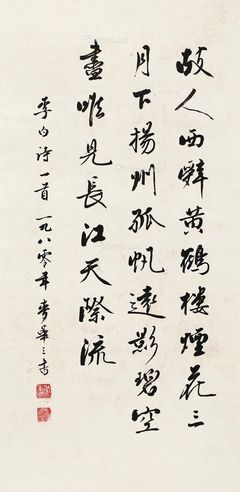 故人西辭黃鶴樓煙花三
月下揚州孤帆遠影碧空
盡唯見長江天際流
李白诗一首一九八零年麥華三書